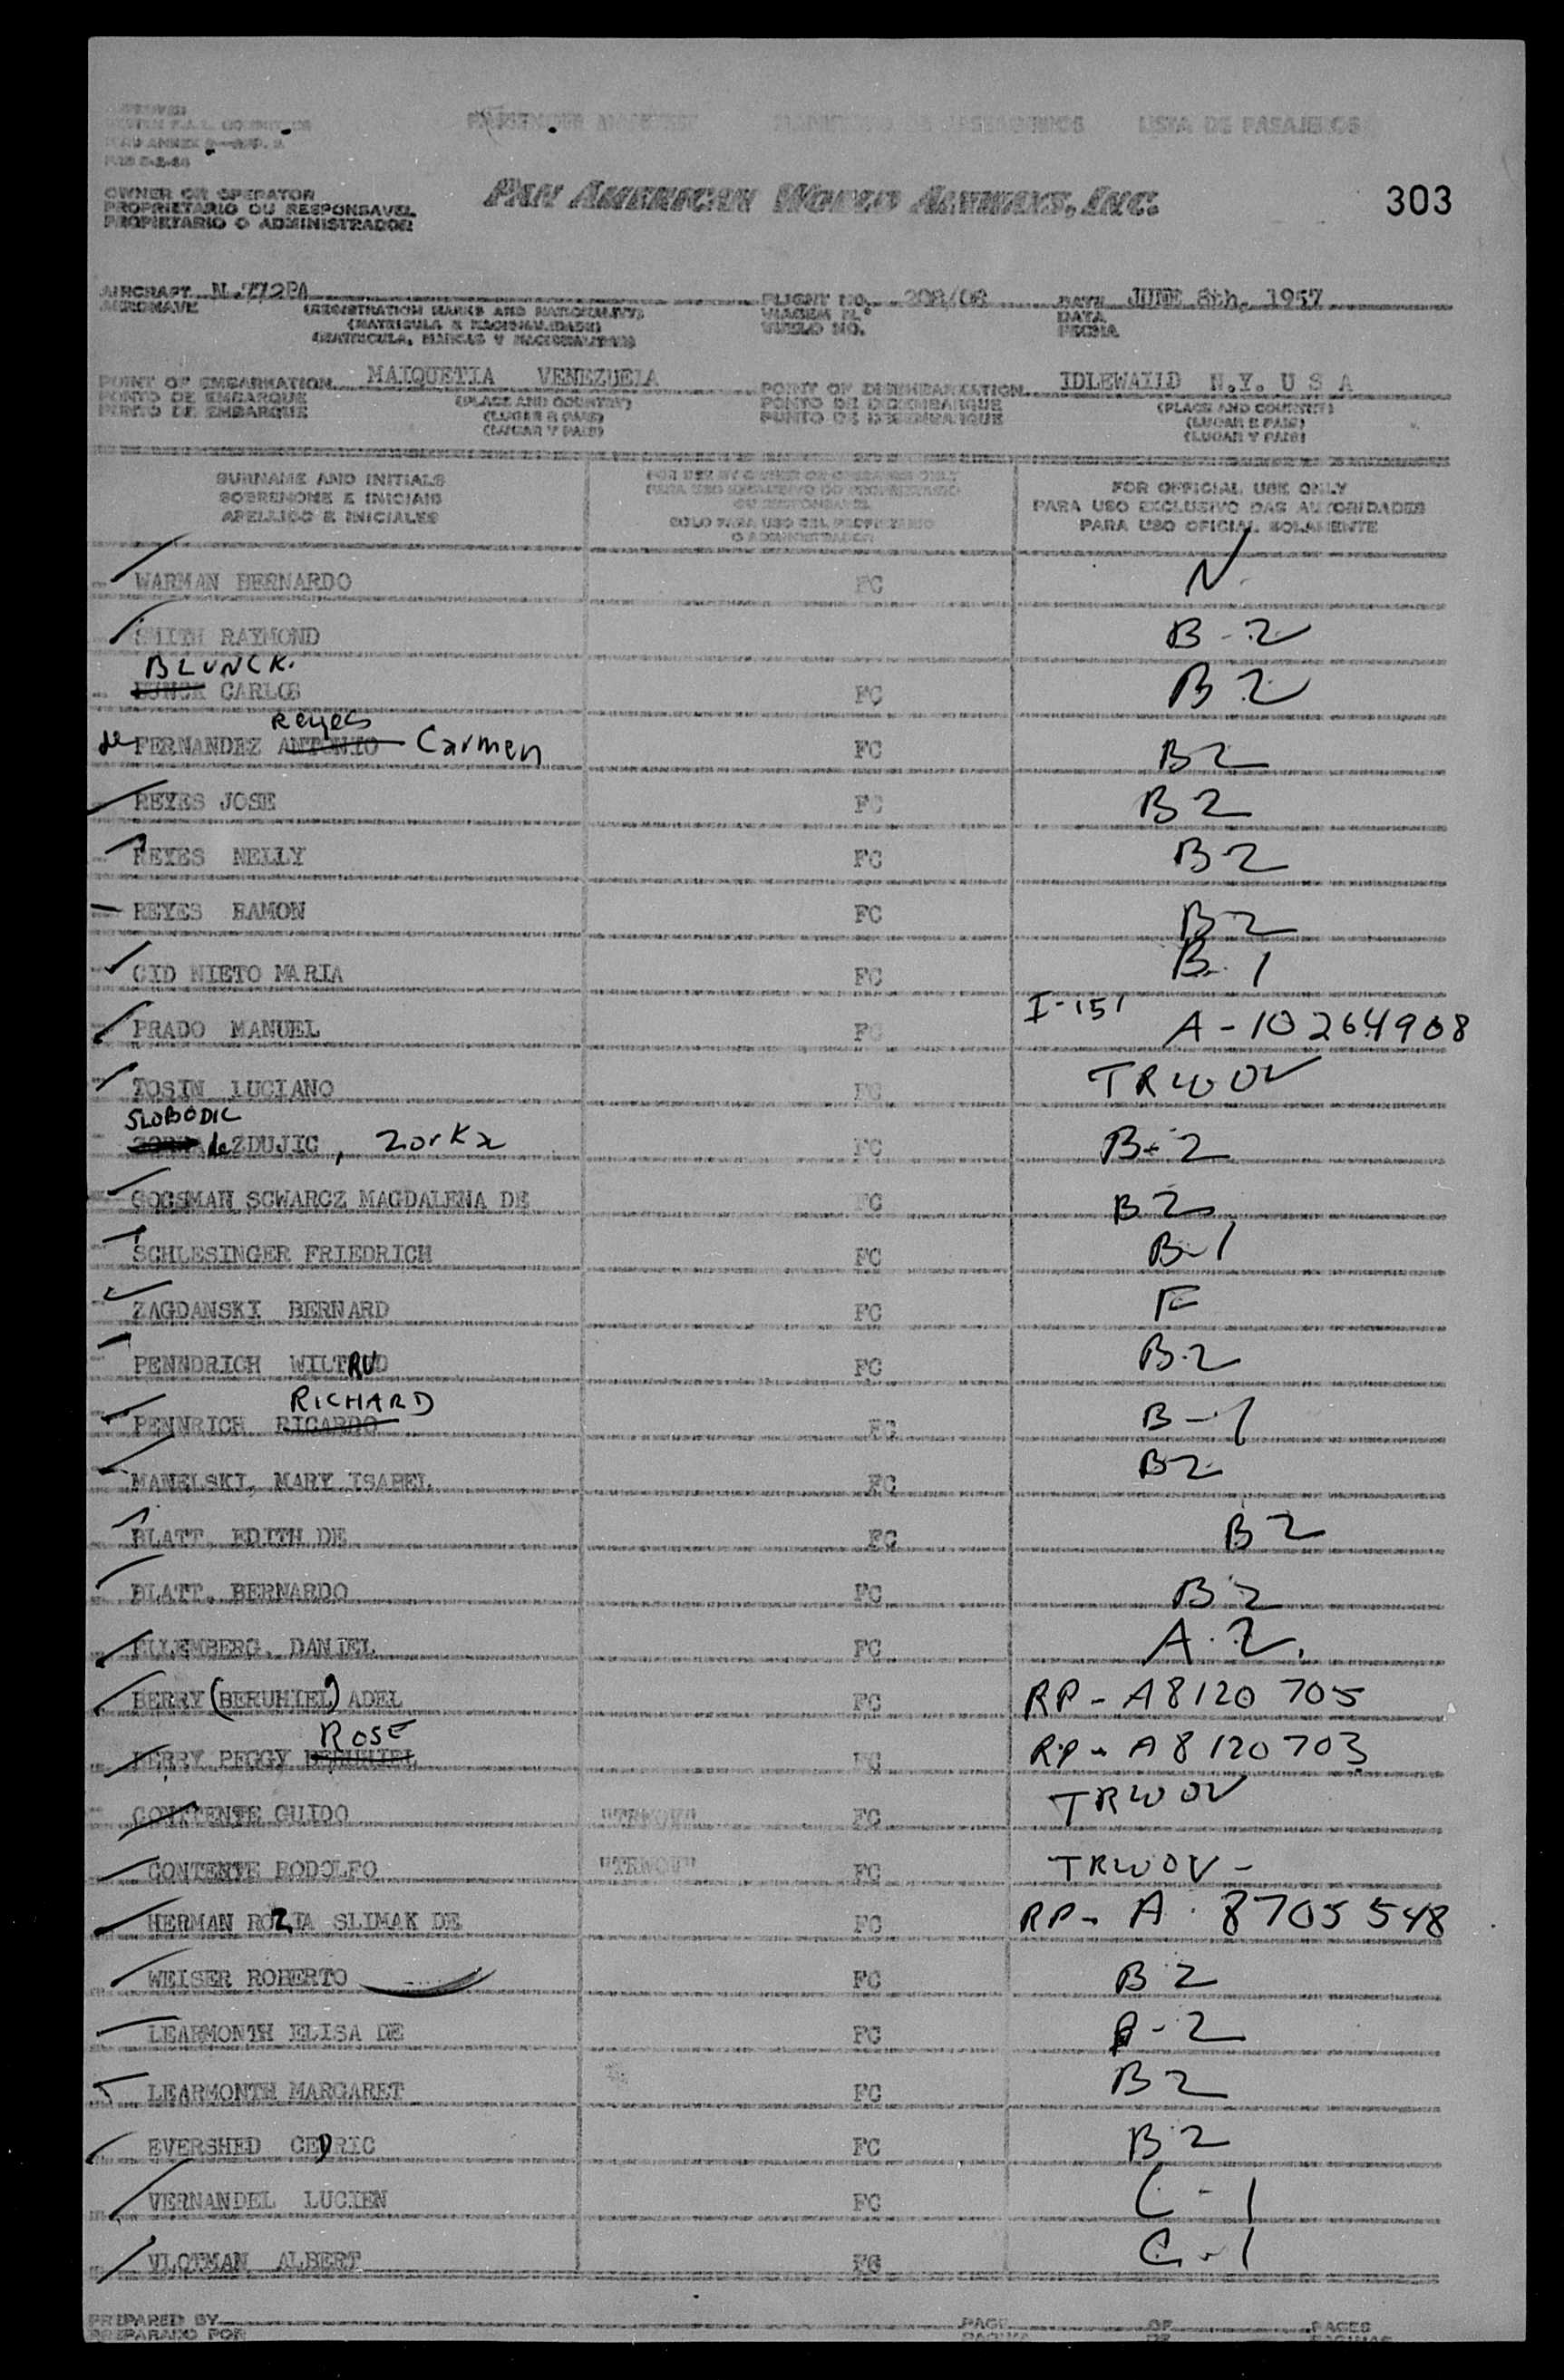 PASSENGER MANIFEST MANIFESTO DE PASSAGEIROS LISTA DE PASAJEROS
OWNER OR OPERATOR
PROPRIETARIO OU RESPONSAVEL
PROPIETARIO O ADMINISTRADOR
PAN AMERICAN WORLD AIRWAYS, INC.
303
AIRCRAFT N.772PA FLIGHT NO. 208/08 DATE JUNE 8th, 1957
AERONAVE (REGISTRATION MARKS AND NATIONALITY) VIAGEM N.° DATA
(MATRICULA E NACIONALIDADE) VUELO NO. FECHA
(MATRICULA, MARCAS Y NACIONALIDAD)
POINT OF EMBARKATION MAIQUETIA VENEZUELA POINT OF DISEMBARKATION IDLEWAILD N.Y. U S A
PONTO DE EMBARQUE (PLACE AND COUNTRY) PONTO DE DESEMBARQUE (PLACE AND COUNTRY)
PUNTO DE EMBARQUE (LUGAR E PAIS) PUNTO DE DESEMBARQUE (LUGAR E PAIS)
(LUGAR Y PAIS) (LUGAR Y PAIS)
SURNAME AND INITIALS FOR USE BY OWNER OR OPERATOR ONLY FOR OFFICIAL USE ONLY
SOBRENOME E INICIAIS PARA USO EXCLUSIVO DO PROPRIETARIO OU RESPONSAVEL PARA USO EXCLUSIVO DAS AUTORIDADES
APELLIDO E INICIALES SOLO PARA USO DEL PROPIETARIO O ADMINISTRADOR PARA USO OFICIAL SOLAMENTE
WARMAN BERNARDO FC N
SMITH RAYMOND B-2
BLUNCK.
CARLOS FC B2
Reyes
de FERNANDEZ ANTONIO Carmen FC B2
REYES JOSE FC B2
REYES NELLY FC B2
REYES RAMON FC B2
CID NIETO MARIA FC B-1
PRADO MANUEL FC I-151 A-10264908
TOSIN LUCIANO FC TRWOV
SLOBODIC
de ZDUJIC, Zorka FC B-2
GOGSMAN SCWARCZ MAGDALENA DE FC B2
SCHLESINGER FRIEDRICH FC B-1
ZAGDANSKI BERNARD FC F
PENNDRICH WILTRUD FC B-2
RICHARD
PENNRICH RICARDO FC B-1
MANELSKI, MARY ISABEL FC B2
BLATT, EDITH DE FC B2
BLATT, BERNARDO FC B2
ELLEMBERG, DANIEL FC A-2.
BERRY (BERUHIEL) ADEL FC RP-A8120705
ROSE
BERRY PEGGY BERUHIEL FC RP-A8120703
CONTTENTE GUIDO "TRWOV" FC TRWOV
CONTENTE RODOLFO "TRWOV" FC TRWOV-
HERMAN ROZIA SLIMAK DE FC RP-A 8705548
WEISER ROBERTO FC B2
LEARMONTH ELISA DE FC B-2
LEARMONTH MARGARET FC B2
EVERSHED CEDRIC FC B2
VERNANDEL LUCIEN FC C-1
VLOTMAN ALBERT FC C-1
PREPARED BY PAGE OF PAGES
PREPARADO POR PAGINA DE PAGINAS